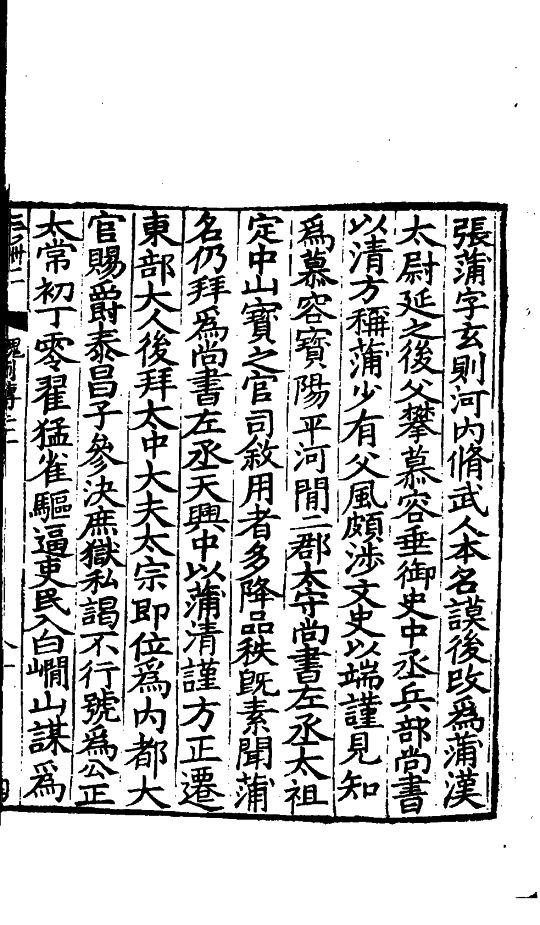 張蒲字玄則河内脩武人本名謨後改爲蒲漢
太尉延之後父攀慕容垂御史中丞兵部尚書
以清方稱蒲少有父風頗涉文史以端謹見知
爲慕容寶陽平河間二郡太守尚書左丞太祖
定中山寶之官司敘用者多降品秩旣素聞蒲
名仍拜爲尚書左丞天興中以蒲清謹方正遷
東部大人後拜太中大夫太宗即位爲内都大
官賜爵泰昌子參決庶獄私謁不行號爲公正
太常初丁零翟猛雀驅逼吏民入白㵎山謀爲